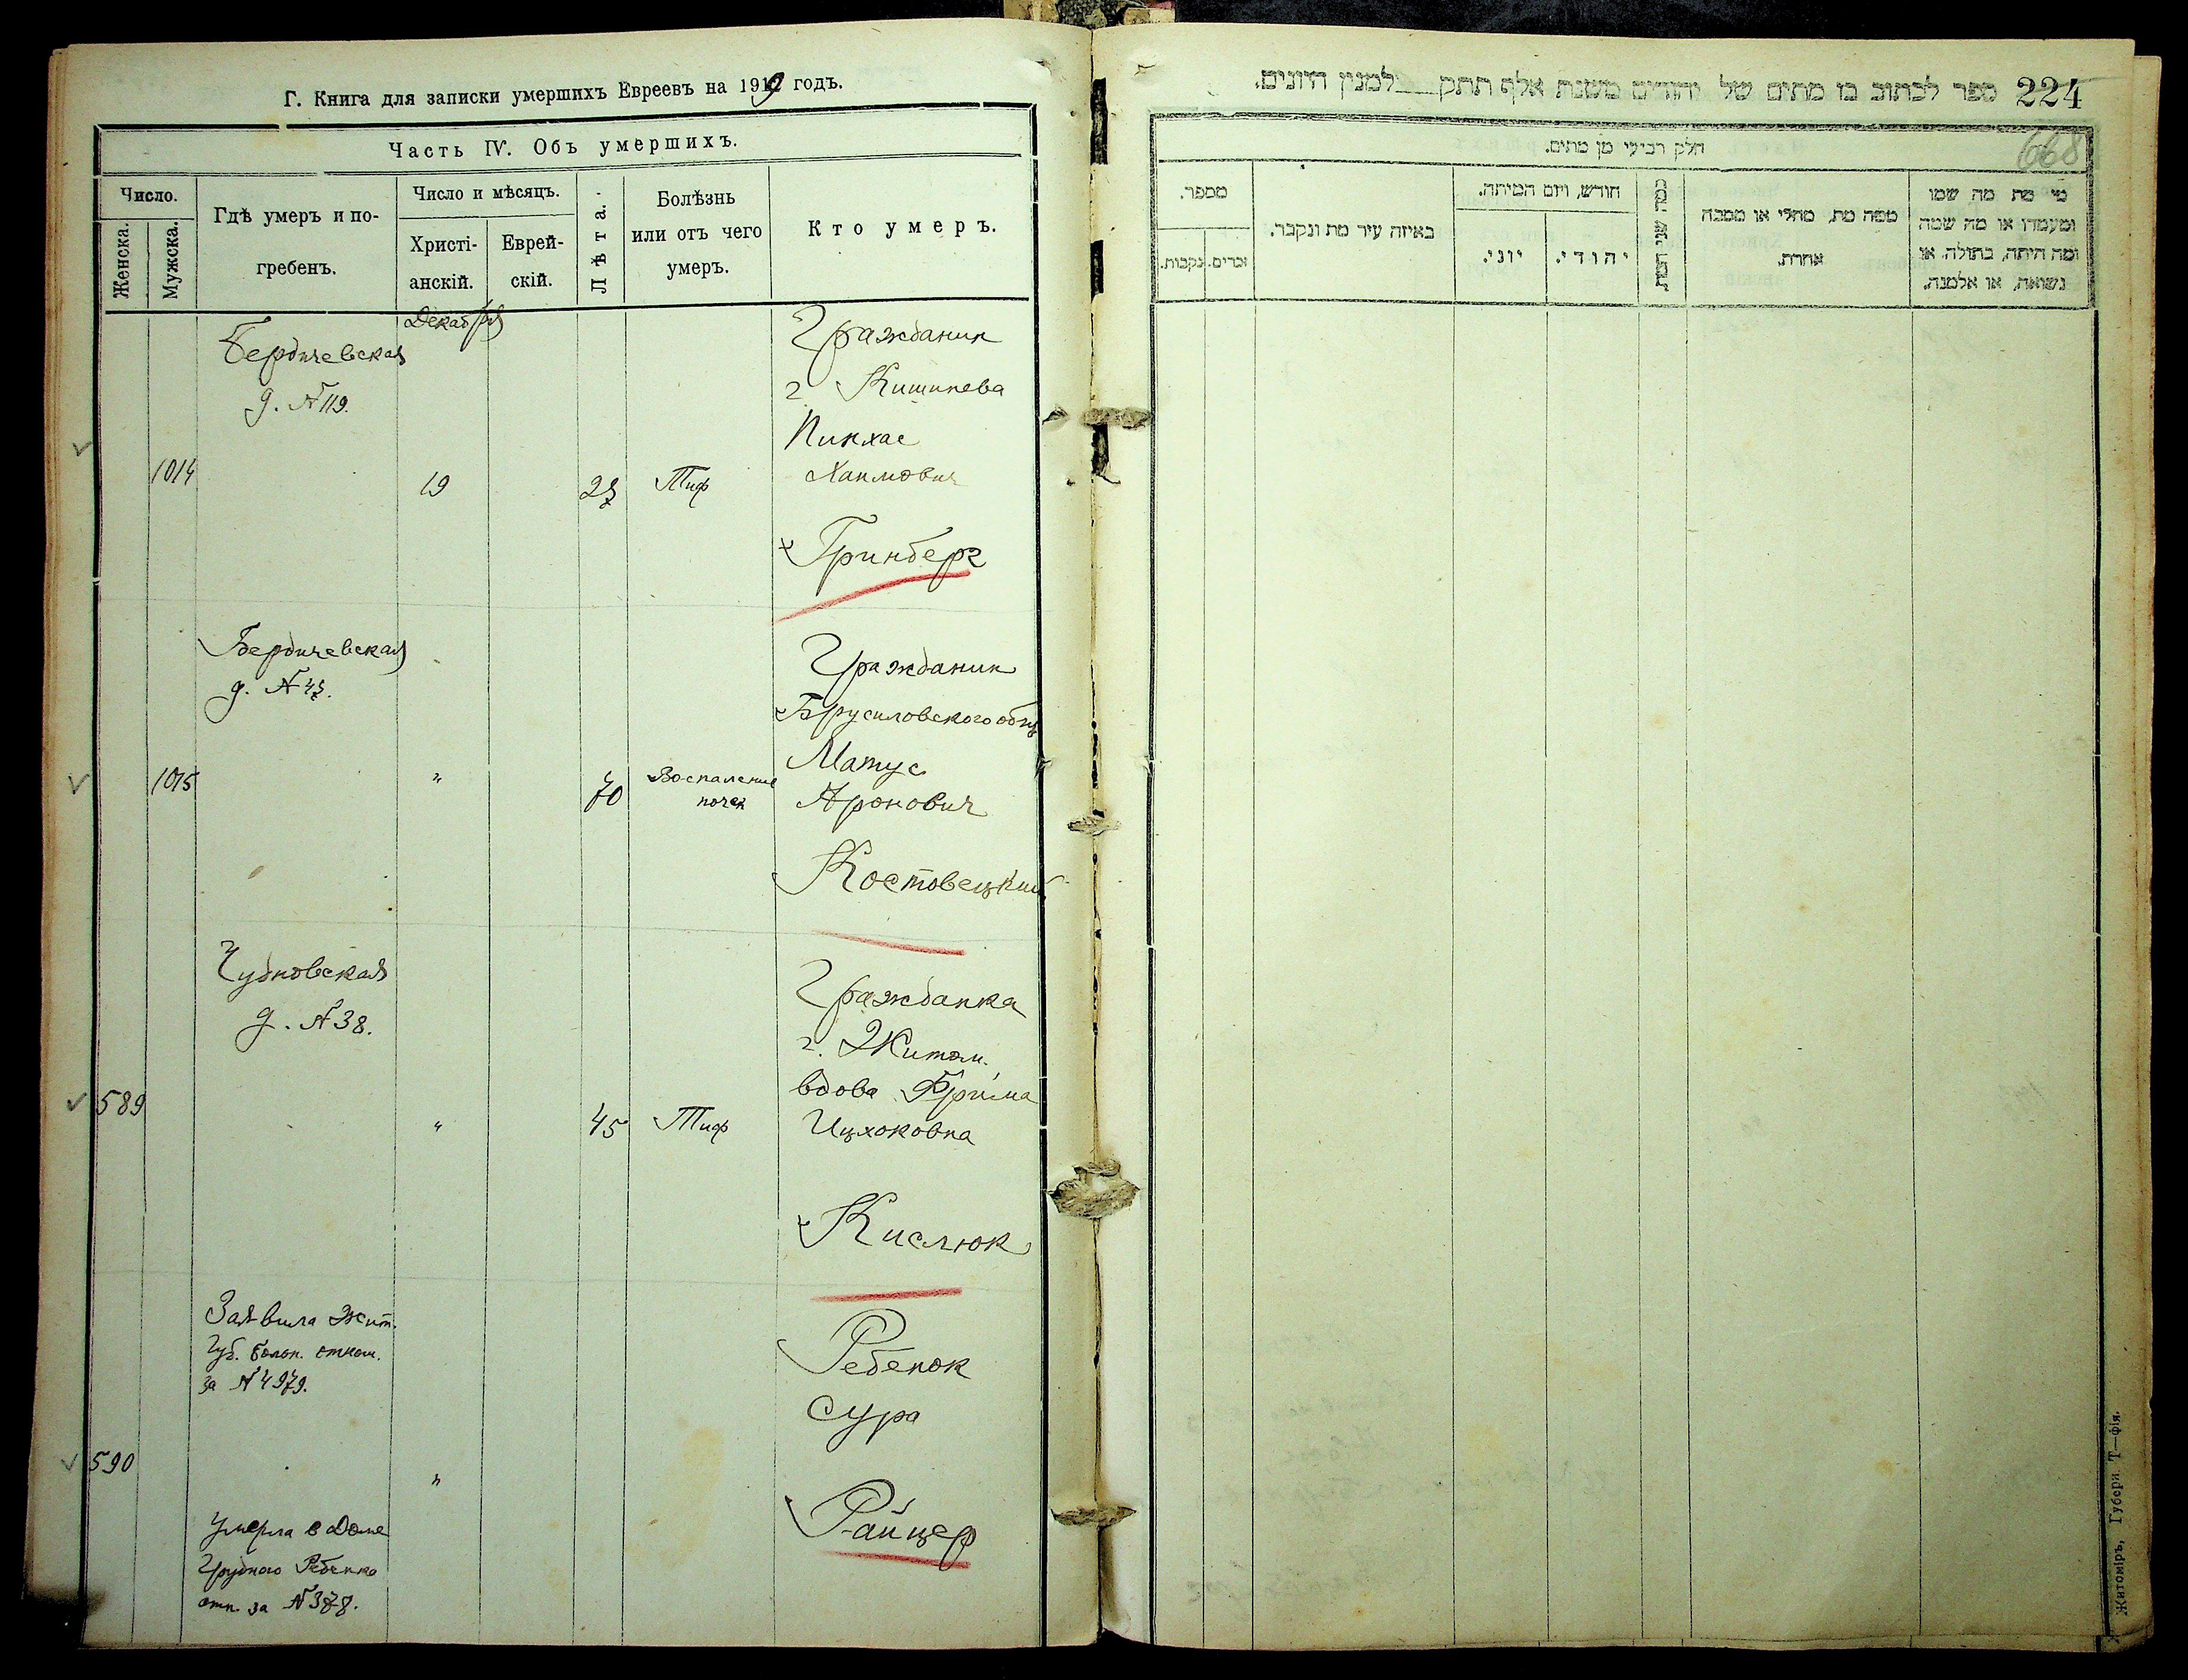 Г. Книга для записки умершихъ Евреевъ на 1919 годъ.
Часть IV. Объ умершихъ.
Число.
Женска.
Мужска.
Гдѣ умеръ и по-
гребенъ.
Число и мѣсяцъ.
Христі-
анскій.
Еврей-
скій.
Лѣта.
Болѣзнь
или отъ чего
умеръ.
Кто умеръ.
Декабря
Бердичевская
д. № 119.
1014
19
27
Тиф
Гражданин
г. Кишинева
Пинхас
Хаимович
Гринберг
Бердичевская
д. № 47.
1015
"
70
Воспаление
почек
Гражданин
Брусиловского общ
Матус
Аронович
Костовецкий
Чудновская
д. № 38.
589
"
45
Тиф
Гражданка
г. Житом.
вдова Фрима
Ицхоковна
Кислюк
Заявила Жит.
Губ. больн. отнош.
за № 4979.
590
"
Умерла в Доме
Грудного Ребенка
отн. за № 378.
Ребенок
Сура
Райцер
224 ספר לכתוב בו מתים של יהודים משנת אלף תתק למנין היונים.
668
חלק רביעי מן מתים.
מספר.
נקבות.
זכרים.
באיזה עיר מת ונקבר.
חודש, ויום המיתה.
יוני.
יהודי.
כמה שני המת
ממה מת, מחלי או מסבה
אחרת.
מי מת מה שמו
ומעמדו או מה שמה
ומה היתה, בתולה או
נשואה, או אלמנה.
Житоміръ, Губерн. Т—фія.